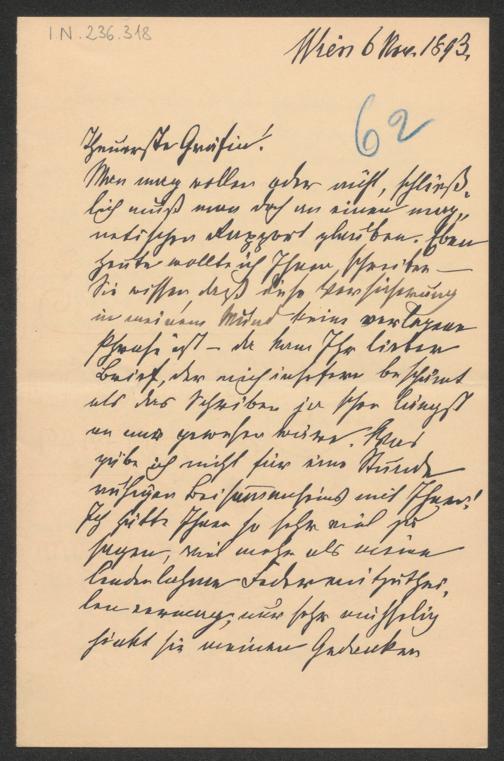 I.N. 236.318
Wien 6 Nov. 1893.
62
Theuerste Gräfin!
Man mag wollen oder nicht, schließ-
lich muß man doch an einen mag-
netischen Rapport glauben. Eben
heute wollte ich Ihnen schreiben —
Sie wissen daß diese Versicherung
in meinem Mund keine verlogene
Phrase ist — da kam Ihr lieber
Brief, der mich insofern beschämt
als das Schreiben ja schon längst
an mir gewesen wäre. Was
gäbe ich nicht für eine Stunde
ruhigen Beisammenseins mit Ihnen!
Ich hätte Ihnen so sehr viel zu
sagen, viel mehr als meine
lendenlahme Feder mitzuthei-
len vermag; nur sehr mühselig
hinkt sie meinen Gedanken